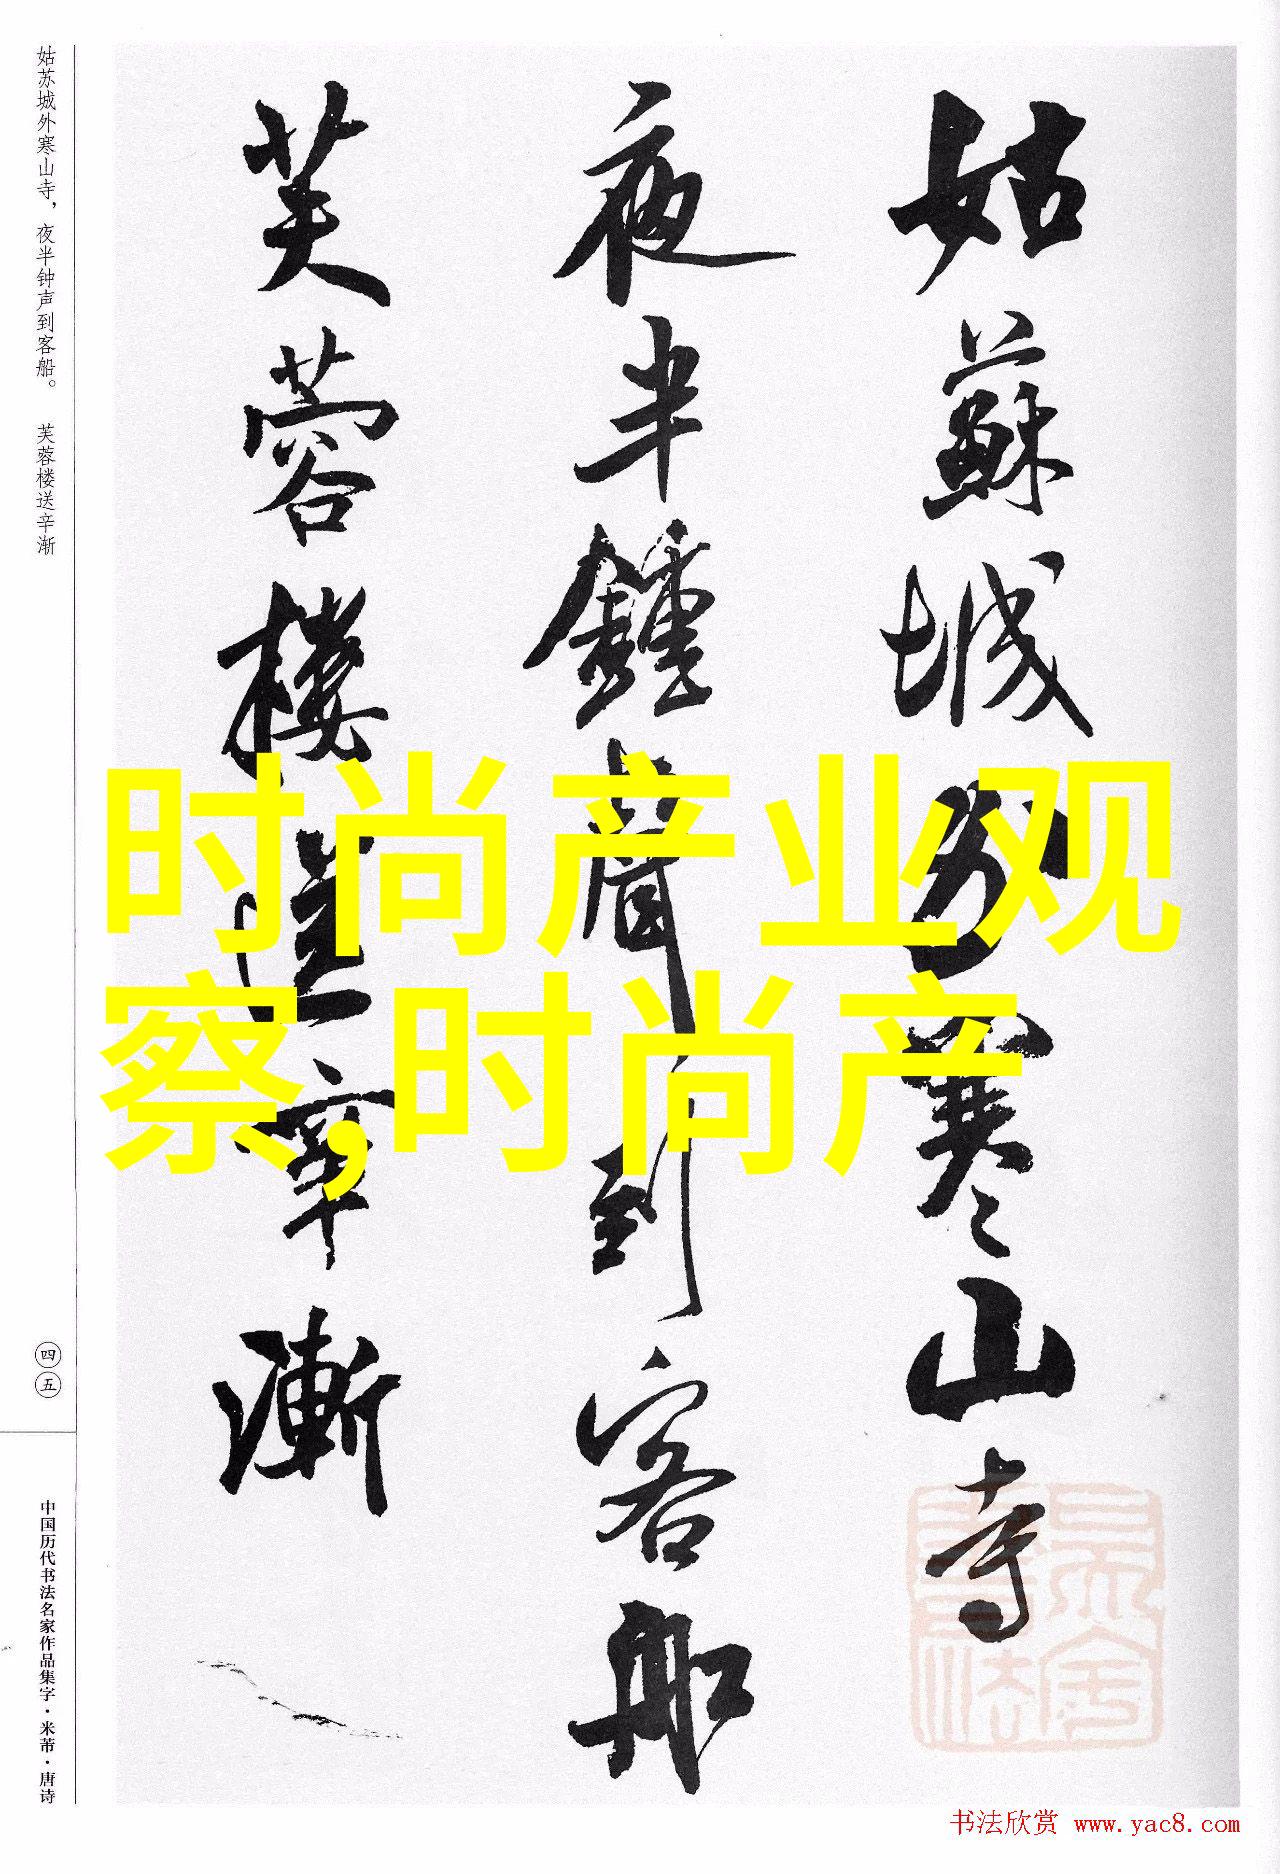 姑蘇城外寒山寺
夜半鍾聲到客船
芙蓉樓送辛漸
时尚产业观
察,时尚产
姑苏城外寒山寺，夜半钟声到客船。 芙蓉楼送辛渐
四五
中国历代书法名家作品集字·米芾·唐诗
书法欣赏 www.yac8.com